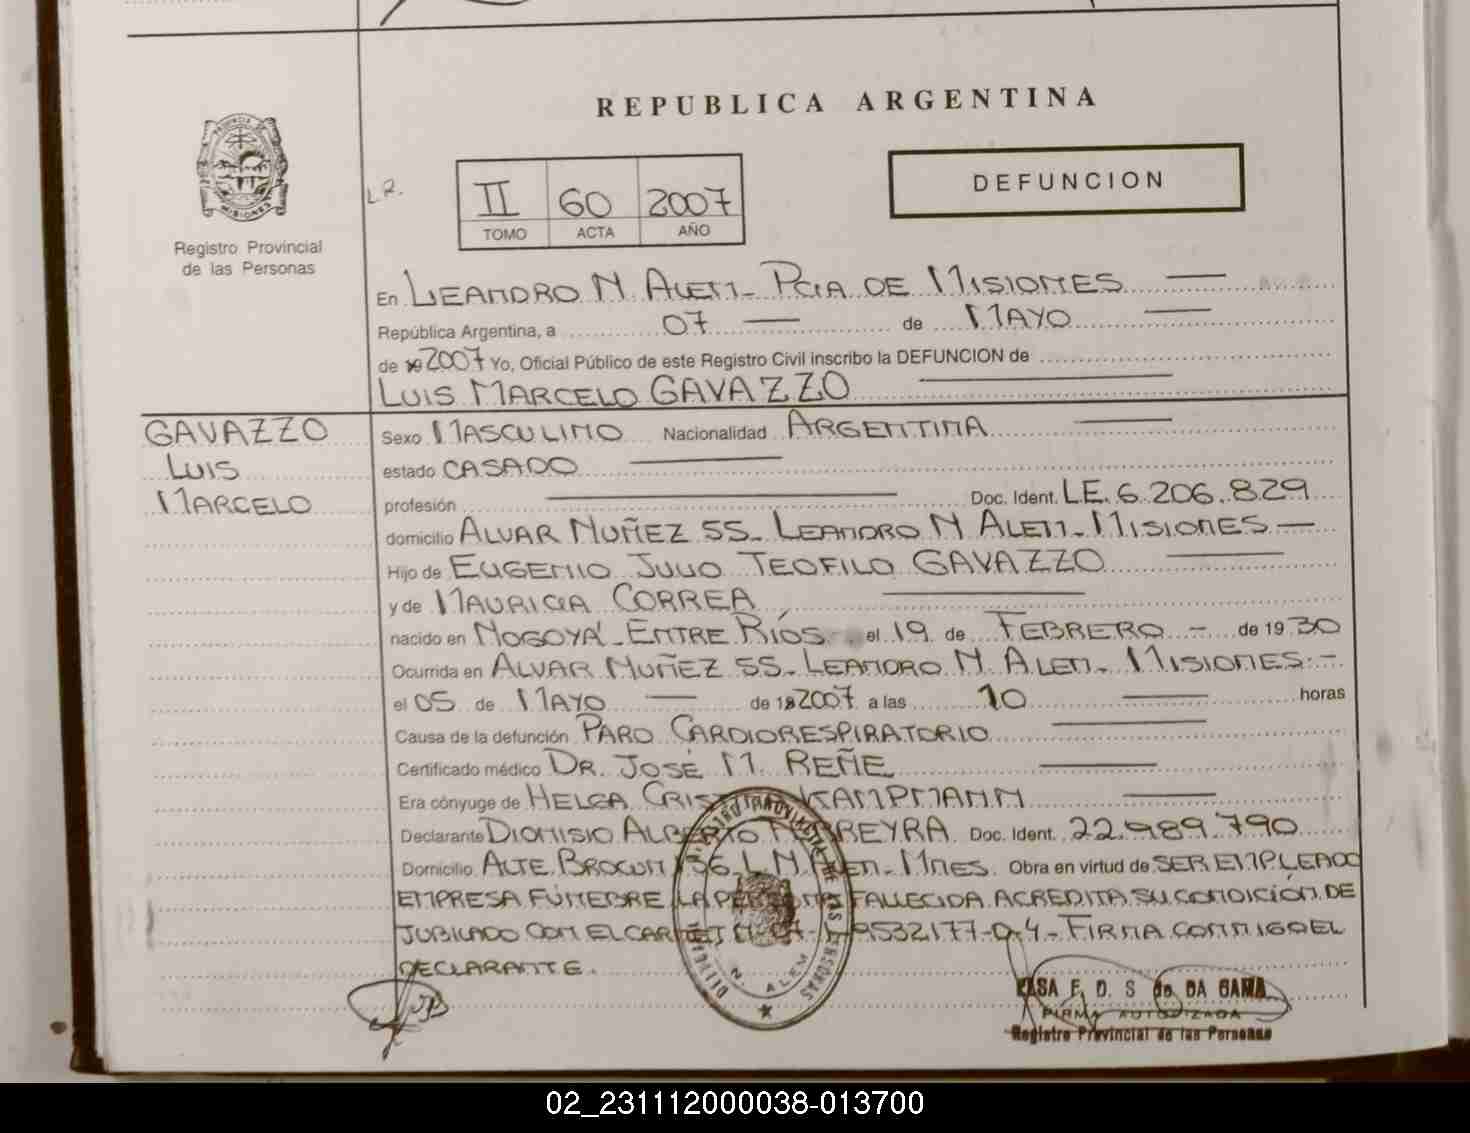 REPUBLICA ARGENTINA
PROVINCIA DE
MISIONES
Registro Provincial
de las Personas
L.R.
II 60 2007
TOMO ACTA AÑO
DEFUNCION
En LEANDRO N. ALEM - PCIA DE MISIONES
República Argentina, a 07 de MAYO
de 2007 Yo, Oficial Público de este Registro Civil inscribo la DEFUNCION de
LUIS MARCELO GAVAZZO
GAVAZZO
LUIS
MARCELO
Sexo MASCULINO Nacionalidad ARGENTINA
estado CASADO
profesión Doc. Ident. L.E. 6.206.829
domicilio ALVAR NUÑEZ 55 - LEANDRO N ALEM - MISIONES -
Hijo de EUGENIO JULIO TEOFILO GAVAZZO
y de MAURICIA CORREA
nacido en NOGOYÁ - ENTRE RÍOS el 19 de FEBRERO - de 1930
Ocurrida en ALVAR NUÑEZ 55 - LEANDRO N. ALEM - MISIONES. -
el 05 de MAYO de 2007 a las 10 horas
Causa de la defunción PARO CARDIORESPIRATORIO
Certificado médico DR. JOSÉ M. REÑE
Era cónyuge de HELGA KAMPMANN
Declarante DIONISIO ALBERTO Doc. Ident. 22.989.790
Domicilio ALTE. BROWN L.N. ALEM - MNES. Obra en virtud de SER EMPLEADO
EMPRESA FÚNEBRE. LA PERSONA FALLECIDA ACREDITA SU CONDICIÓN DE
JUBILADO CON EL CARNET 9532177-0-4 - FIRMA CONMIGO EL
DECLARANTE.
N. ALEM
ROSA F. D. S de DA GAMA
FIRMA AUTORIZADA
Registro Provincial de las Personas
02_231112000038-013700